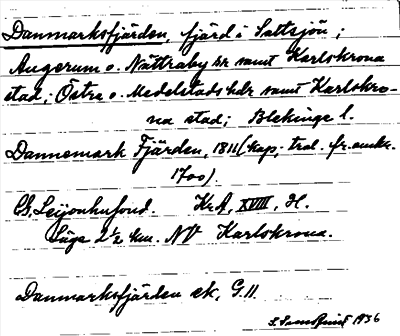 Danmarksfjärden, fjärd i Saltsjön;
Augerum o. Nättraby sr samt Karlskrona
stad; Östra o. Medelstads hdr samt Karlskro-
na stad; Blekinge l.
Dannemark Fjärden, 1811 (kop. trol. fr. omkr.
1700).
C.G. Leijonhufvud. Kr.A, XVIII, H.
Läge 2½ km. NV Karlskrona.
Danmarksfjärden ek, G.11.
1936